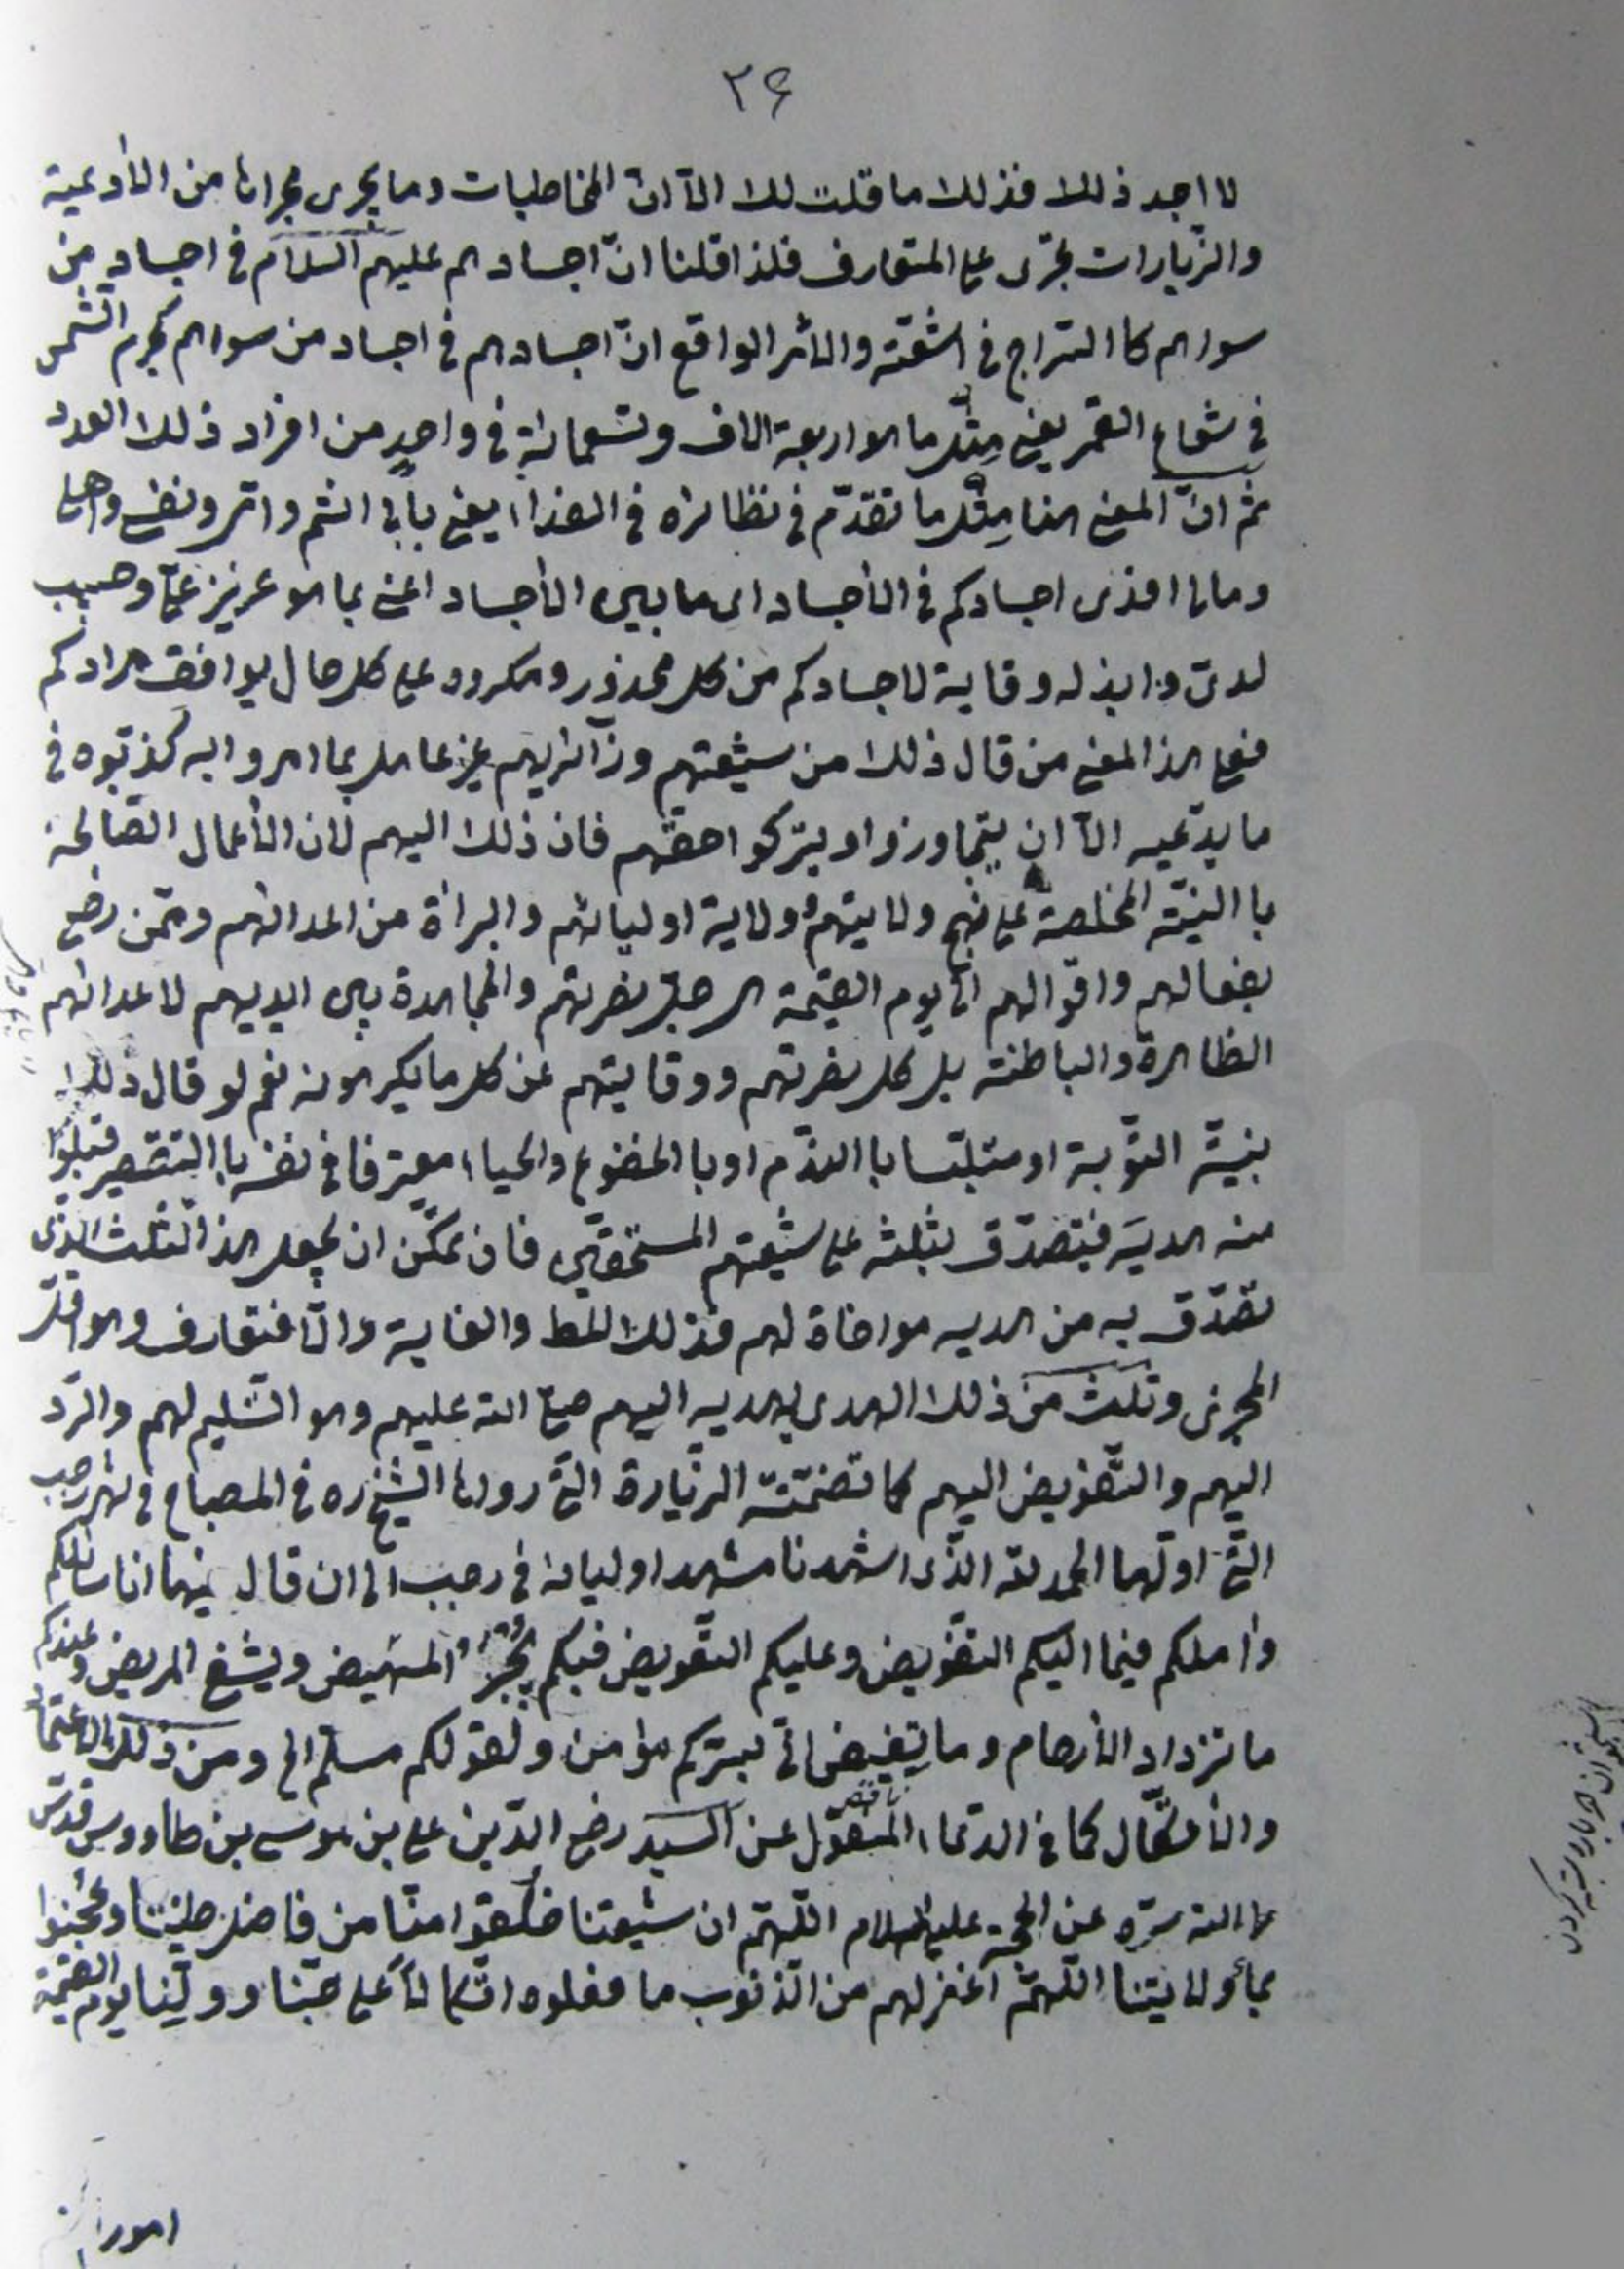 ٣۶
لا اجد ذلك فذلك ما قلت لك الّا انّ المخاطبات وما يجرى مجراها من الأدعية
والزّيارات تجرى على المتعارف فلذا قلنا انّ اجسادهم عليهم السلام فى اجساد من
سواهم كالسّراج فى اشعّته والأمر الواقع انّ اجسادهم فى اجساد من سواهم كجرم الشّمس
فى شعاع القمر يعنى مثل ما هو اربعة الاف وتسعمائة فى واحدٍ من افراد ذلك العدد
ثم انّ المعنى هنا مثل ما تقدّم فى نظائره فى الفداء يعنى بابى انتم وامّى ونفسى واهلى
ومالى افدى اجسادكم فى الأجساد اى ما بين الأجساد اعنى بما هو عزيز علىّ وحبيب
لدىّ وابذله وقاية لاجسادكم من كل محذور ومكروه على كل حال يوافق مرادكم
فعلى هذا المعنى من قال ذلك من شيعتهم وزآئريهم غير عامل بما امروا به كذّبوه فى
ما يدّعيه الّا ان يتجاوزوا ويتركوا حقّهم فان ذلك اليهم لان الأعمال الصّالحة
با النيّة المخلصة على نهج ولايتهم وولاية اوليائهم والبرائة من اعدائهم وممّن رضى
بفعالهم واقوالهم الى يوم القيمة هى جلّ نصرتهم والمجاهدة بين ايديهم لاعدائهم
الظاهرة والباطنة بل كل نصرتهم ووقايتهم عن كل ما يكرهونه نعم لو قال ذلك
بنيّة التّوبة او متلبّسا با النّدم او با الخضوع والحياء معترفا فى نفسه با التقصير قبلوا
منه هديّته فيتصدّق بثلثه على شيعتهم المستحقّين فان تمكّن ان يجعل هذا الثّلث الّذى
تصدّق به من هديه مواخاة لهم فذلك المط والغاية والّا فتعارف وهو اقلّ
المجزى وثلث من ذلك الهدى يهديه اليهم صلى الله عليهم وهو التّسليم لهم والرّد
اليهم والتّفويض اليهم كما تضمّنته الزّيارة التى رواها الشّيخ ره فى المصباح فى شهر رجب
التّى اوّلها الحمد لله الّذى اشهدنا مشهد اوليائه فى رجب الى ان قال فيها انا سائلكم
وآملكم فيما اليكم التفويض وعليكم التّعويض فبكم يُجبَر المهيض ويشفى المريض وعندكم
ما تزداد الأرحام وما تغيض انّى بسرّكم مؤمن ولقولكم مسلّم الخ ومن ذلك الاعتماد
والأتّكال كما فى الدّعاء المنقول عن السيد رضى الدّين على بن موسى بن طاووس قدّس
الله سرّه عن الحجة عليه السلام اللّهمّ ان شيعتنا خلقوا منّا من فاضل طينتنا وعُجنوا
بماء ولايتنا اللّهمّ اغفر لهم من الذنوب ما فعلوه اتّكالاً على حبّنا وولّينا يوم القيمة
امورهم